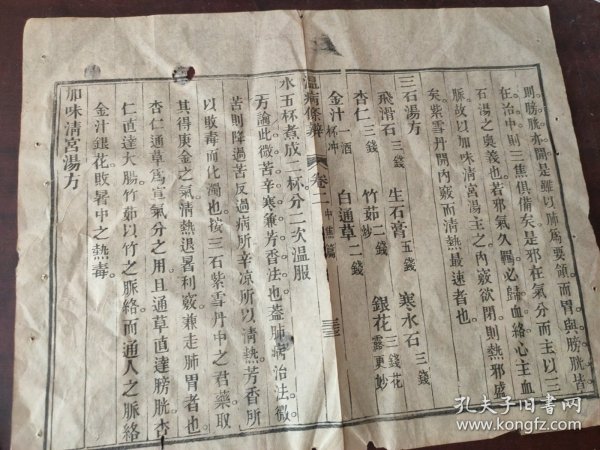 則膀胱亦開是雖以肺爲要領而胃與膀胱皆
在治中則三焦俱備矣是邪在氣分而主以三
石湯之奧義也若邪氣久羈必歸血絡心主血
脈故以加味清宮湯主之內竅欲閉則熱邪盛
矣紫雪丹開內竅而清熱最速者也
三石湯方
飛滑石 三錢 生石膏 五錢 寒水石 三錢
杏仁 三錢 竹茹 炒 二錢 銀花 三錢 花露更妙
金汁 一酒杯冲 白通草 二錢
溫病條辨 卷二 中焦篇 三三
水五杯煮成二杯分二次溫服
方論此微苦辛寒兼芳香法也蓋肺病治法微
苦則降過苦反過病所辛凉所以清熱芳香所
以敗毒而化濁也按三石紫雪丹中之君藥取
其得庚金之氣清熱退暑利竅兼走肺胃者也
杏仁通草爲宣氣分之用且通草直達膀胱杏
仁直達大腸竹茹以竹之脈絡而通人之脈絡
金汁銀花敗暑中之熱毒
加味清宮湯方
孔夫子旧書网